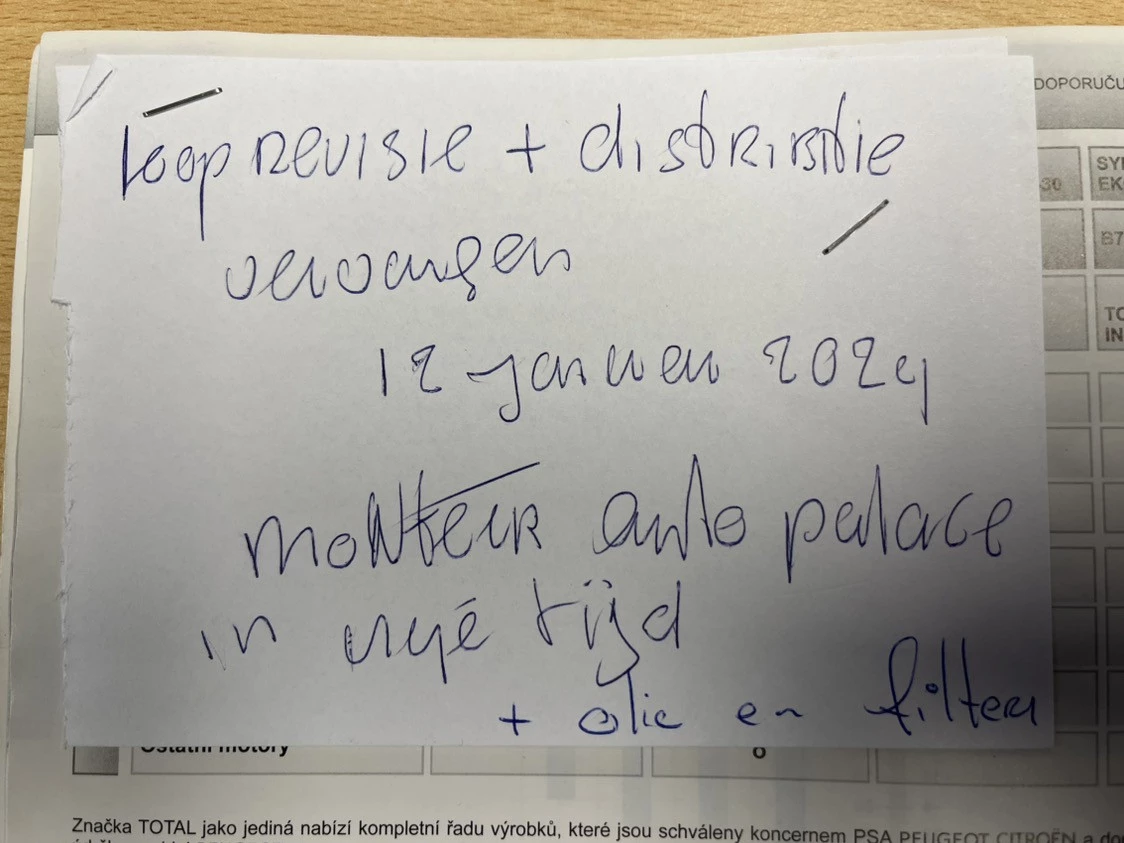 DOPORUČU
koop revisie + distributie
30
SY
EK
vervangen
B7
12 januari 2024
TO
IN
monteur auto palace
in vrije tijd
+ olie en filter
Ostatní motory
6
Značka TOTAL jako jediná nabízí kompletní řadu výrobků, které jsou schváleny koncernem PSA PEUGEOT CITROËN a do